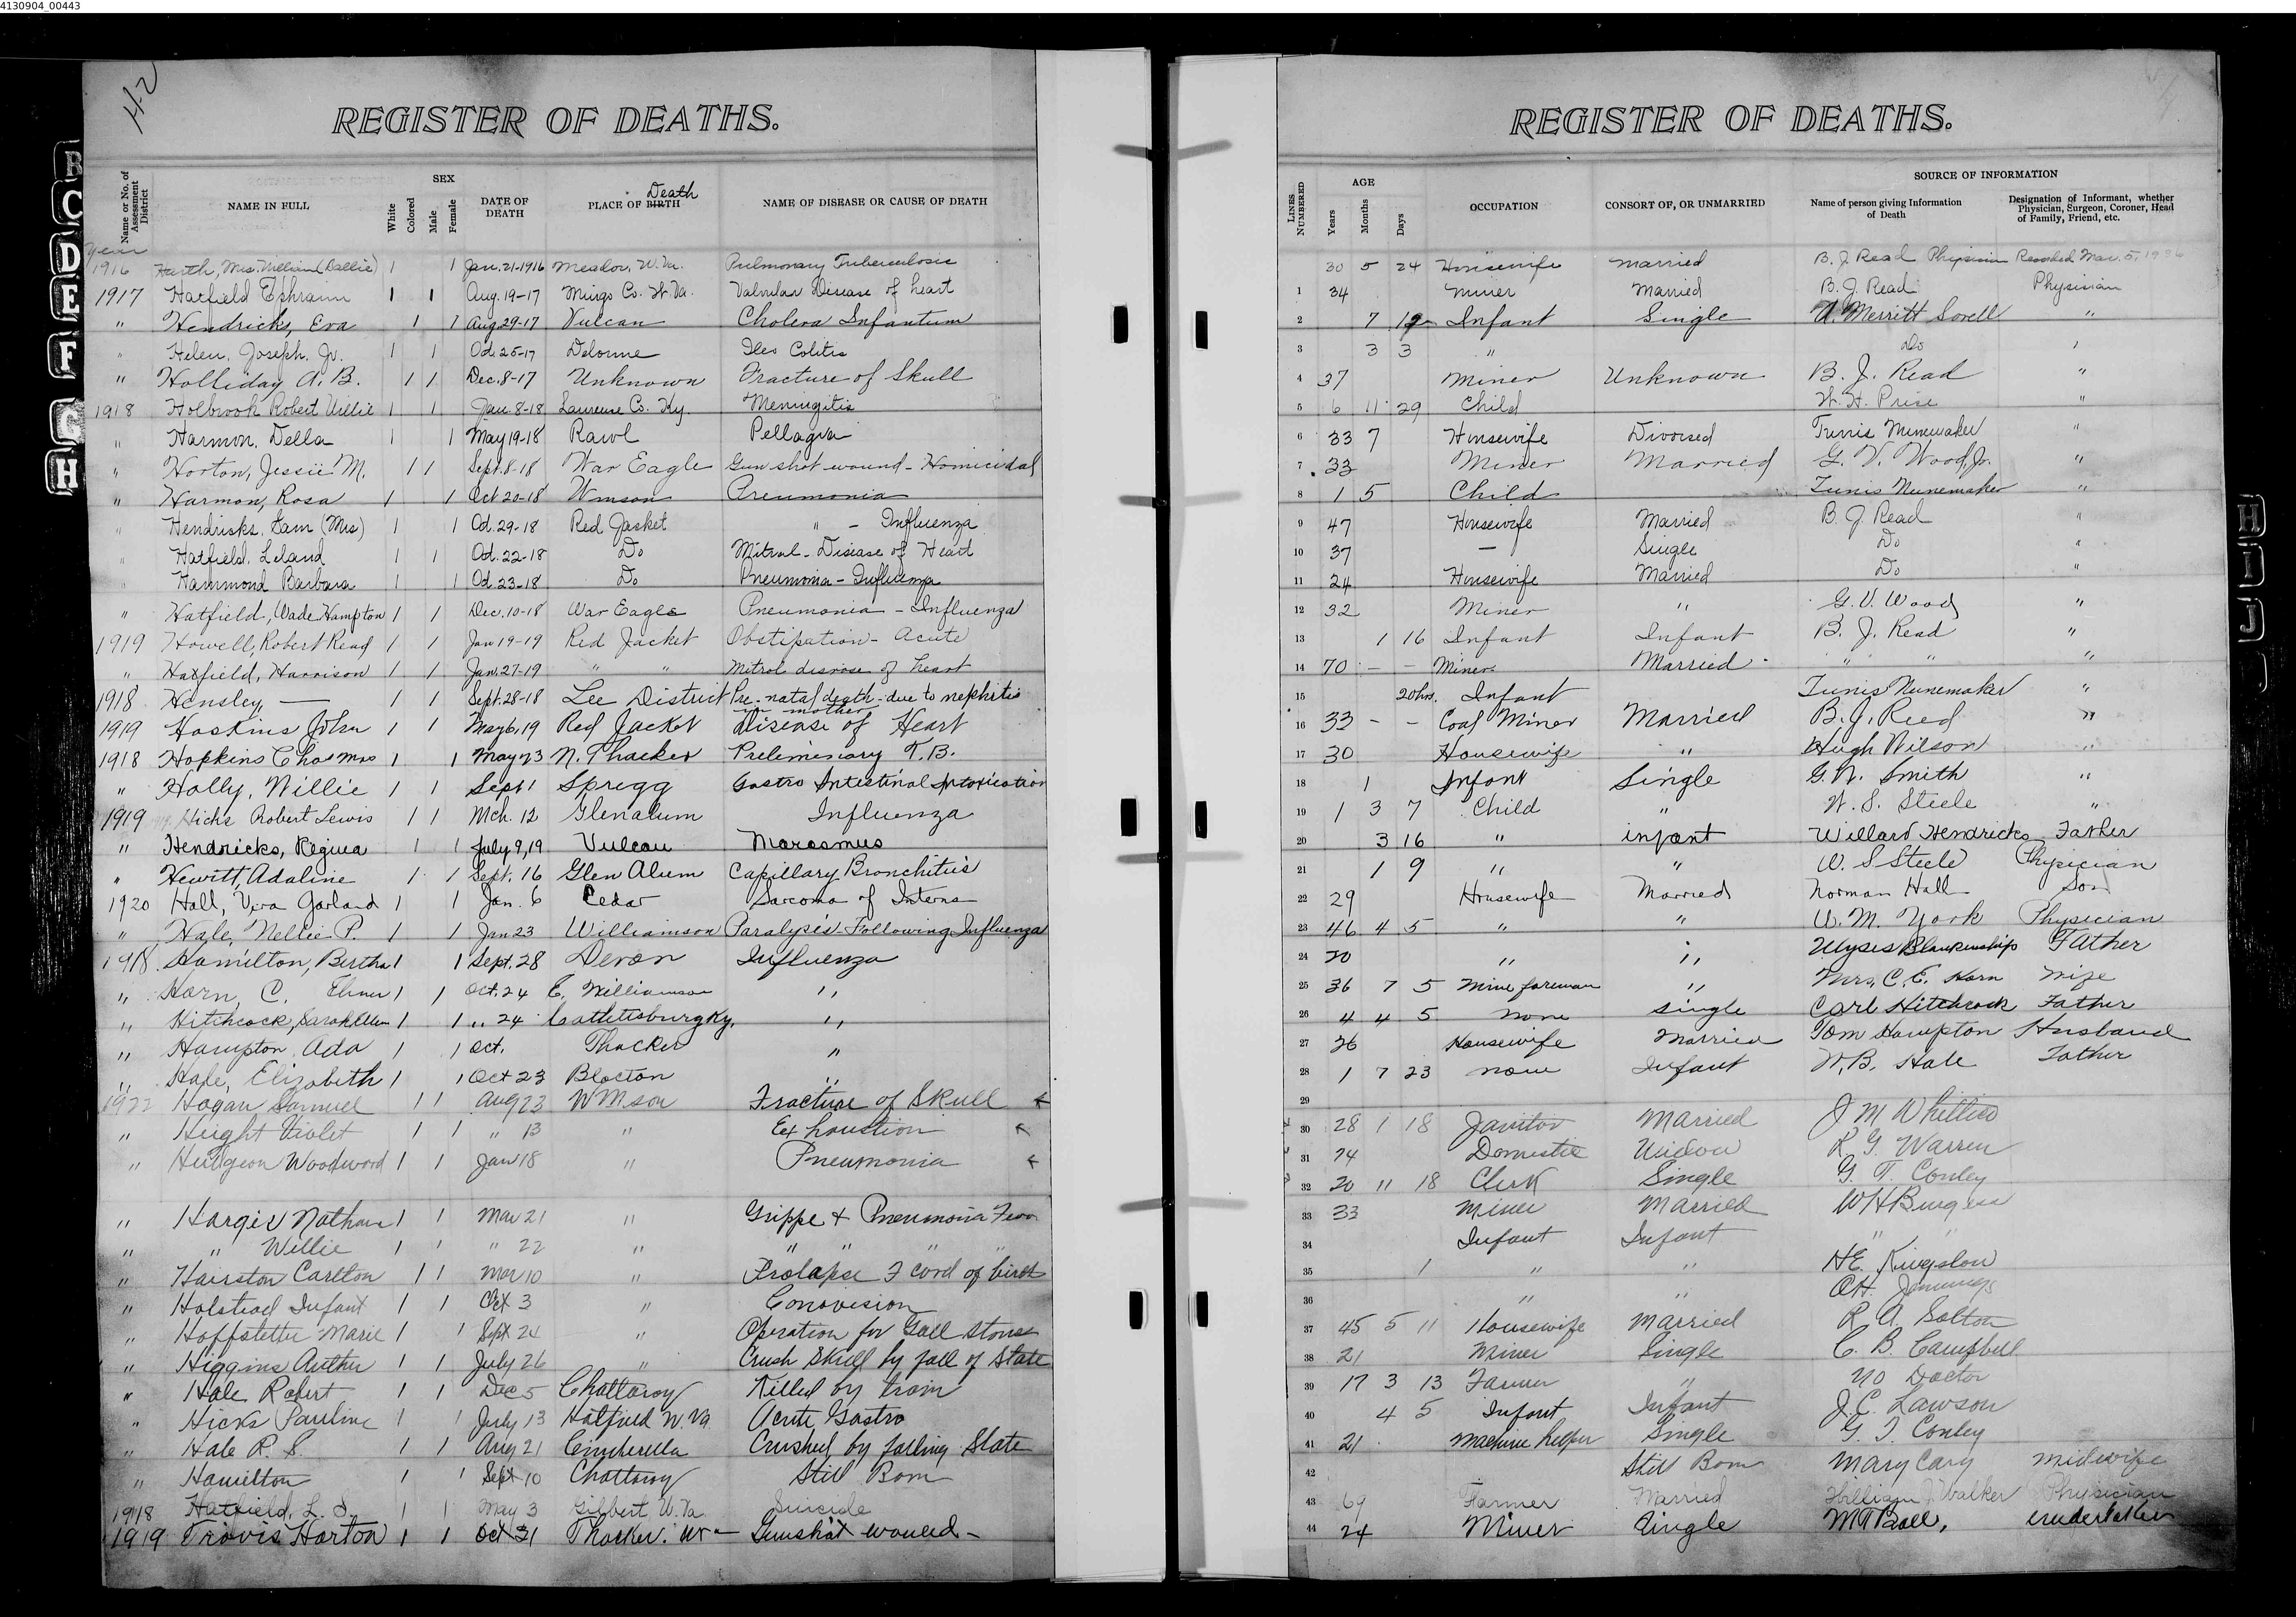 4130904_00443
H-2
REGISTER OF DEATHS.
Name or No. of Assessment District
NAME IN FULL
SEX
White
Colored
Male
Female
DATE OF DEATH
PLACE OF BIRTH Death
NAME OF DISEASE OR CAUSE OF DEATH
Year
1916 Harth, Mrs. William (Dallie) 1 1 Jan. 21-1916 Meador, W. Va. Pulmonary Tuberculosis
1917 Hatfield Ephraim 1 1 Aug. 19-17 Mingo Co. W. Va. Valvular Disease of heart
" Hendricks, Eva 1 1 Aug 29-17 Vulcan Cholera Infantum
" Helen, Joseph, Jr. 1 1 Oct. 25-17 Delorme Ileo Colitis
" Holliday A. B. 1 1 Dec. 8-17 Unknown Fracture of Skull
1918 Holbrook Robert Willie 1 1 Jan. 8-18 Lawrence Co. Ky. Meningitis
" Harmon, Della 1 1 May 19-18 Rawl Pellagra
" Horton, Jessie M. 1 1 Sept. 8-18 War Eagle Gun shot wound - Homicidal
" Harmon, Rosa 1 1 Oct 20-18 Wmson Pneumonia
" Hendricks, Sam (Mrs) 1 1 Oct. 29-18 Red Jacket " - Influenza
" Hatfield, Leland 1 1 Oct. 22-18 Do Mitral - Disease of Heart
" Hammond Barbara 1 1 Oct 23-18 Do Pneumonia - Influenza
" Hatfield, Wade Hampton 1 1 Dec. 10-18 War Eagle Pneumonia - Influenza
1919 Howell, Robert Read 1 1 Jan 19-19 Red Jacket Obstipation - Acute
" Hatfield, Harrison 1 1 Jan. 27-19 " " Mitral disease of heart
1918 Hensley, — 1 1 Sept. 28-18 Lee District Pre-natal death - due to nephitis in mother
1919 Hoskins John 1 1 May 6, 19 Red Jacket Disease of Heart
1918 Hopkins Chas Mrs 1 1 May 23 N. Thacker Prelimenary T.B.
" Holly, Willie 1 1 Sept 1 Sprigg Gastro Intestinal Intoxication
1919 Hicks Robert Lewis 1 1 Mch. 12 Glenalum Influenza
" Hendricks, Regina 1 1 July 9, 19 Vulcan Marasmus
" Hewitt, Adaline 1 1 Sept. 16 Glen Alum Capillary Bronchitis
1920 Hall, Vera Garland 1 1 Jan. 6 Cedar Sarcoma of Interns
" Hale, Nellie P. 1 1 Jan 23 Williamson Paralysis - Following Influenza
1918 Hamilton, Bertha 1 1 Sept. 28 Devon Influenza
" Horn, C. Elmer 1 1 Oct. 24 E. Williamson "
" Hitchcock, Sarah Ellen 1 1 " 24 Catlettsburg Ky. "
" Hampton, Ada 1 1 Oct. Thacker "
" Hale, Elizabeth 1 1 Oct 23 Blocton "
1922 Hogan Samuel 1 1 Aug 23 WMson Fracture of Skull
" Height Violet 1 1 " 13 " Exhoustion
" Hudgeon Woodword 1 1 Jan 18 " Pneumonia
" Hargis Nathan 1 1 Mar 21 " Grippe & Pneumonia
" " Willie 1 1 " 22 " " " " "
" Hairston Carlton 1 1 Mar 10 " Prolapse of cord of birth
" Holstead Infant 1 1 Oct 3 " Conovision
" Hoffstetter Marie 1 1 Sept 24 " Operation for Gall stones
" Higgins Auther 1 1 July 26 " Crush Skull by fall of State
" Hale Robert 1 1 Dec 5 Chattaroy Killed by train
" Hicks Pauline 1 1 July 13 Hatfield W. Va Acute Gastro
" Hale R. S. 1 1 Aug 21 Cinderella Crushed by falling Slate
" Hamilton 1 1 Sept 10 Chattaroy Still Born
1918 Hatfield, L. S. 1 1 May 3 Gilbert W. Va Suicide
1919 Travis Horton 1 1 Oct 31 Thacker. W Gunshot wound -
REGISTER OF DEATHS.
LINES NUMBERED
AGE
Years
Months
Days
OCCUPATION
CONSORT OF, OR UNMARRIED
SOURCE OF INFORMATION
Name of person giving Information of Death
Designation of Informant, whether Physician, Surgeon, Coroner, Head of Family, Friend, etc.
30 5 24 Housewife Married B. J. Read Physician Recorded Mar. 5, 1936
1 34 Miner Married B. J. Read Physician
2 7 19 Infant Single A. Merritt Sovell "
3 3 3 " Do "
4 37 Miner Unknown B. J. Read "
5 6 11 29 Child W. H. Price "
6 33 7 Housewife Divorced Tunis Nunemaker "
7 33 Miner Married G. V. Wood, Jr. "
8 1 5 Child Tunis Nunemaker "
9 47 Housewife Married B. J. Read "
10 37 — Single Do "
11 24 Housewife Married Do "
12 32 Miner " G. V. Wood "
13 1 16 Infant Infant B. J. Read "
14 70 - - Miner Married " " "
15 20 hrs. Infant Tunis Nunemaker "
16 33 - - Coal Miner Married B. J. Reed "
17 30 Housewife " Hugh Wilson "
18 1 Infant Single G. W. Smith "
19 1 3 7 Child " W. S. Steele "
20 3 16 " infant Willard Hendricks Father
21 1 9 " " W. S Steele Physician
22 29 Housewife Married Norman Hall Son
23 46 4 5 " " W. M. York Physician
24 20 " " Ulysis Blankenship Father
25 36 7 5 Mine foreman " Mrs. C. E. Horn Wife
26 4 4 5 none single Carl Hitchcock Father
27 26 Housewife Married Tom Hampton Husband
28 1 7 23 none Infant W. B. Hale Father
29
30 28 1 18 Janitor Married J M Whittico
31 74 Domestic Widow R G. Warren
32 20 11 18 Clerk Single G. T. Conley
33 33 Miner Married W H Burgess
34 Infant Infant "
35 1 " " H E. Kingslow
36 " " O H. Jennings
37 45 5 11 Housewife Married R. A. Solton
38 21 Miner Single C. B. Campbell
39 17 3 13 Farmer " No Doctor
40 4 5 Infant Infant J. C. Lawson
41 21 Machine helper Single G. T. Conley
42 Still Born Mary Cary Midwife
43 69 Farmer Married William J. Walker Physician
44 24 Miner Single M T Ball, Undertaker
B
C
D
E
F
G
H
H
I
J